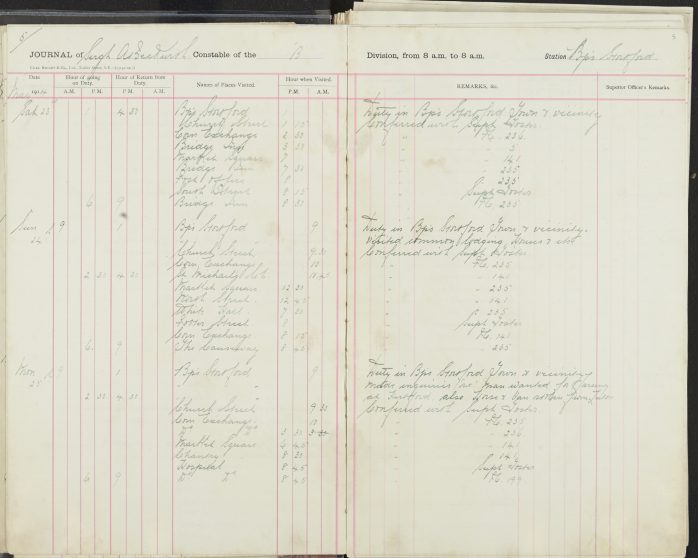 5
5
JOURNAL of Sergt Constable of the B Division, from 8 a.m. to 8 a.m. Station Bp's Stortford
Date Hour of going on Duty. Hour of Return from Duty. Names of Places Visited. Hour when Visited. REMARKS, &c. Superior Officer's Remarks.
1914 A.M. P.M. A.M. P.M. P.M. A.M.
Sat 23 1 4 30 Bp's Stortford 1 Duty in Bp's Stortford Town & vicinity
Church Street 1 15 Conferred with Supt Foster
Corn Exchange 2 30 " P.C. 236
Bridge Inn 3 30
Market Square 7 " 141
Bridge Inn 7 30 " 235
Post Office 8 " 235
South Street 8 15 Supt Foster
6 9 Bridge Inn 8 30 P.C. 235
Sun 24 9 1 Bp's Stortford 9 Duty in Bp's Stortford Town & vicinity.
Visited common lodging houses &
Church Street 9 30 Conferred with Supt Foster
Corn Exchange 10 " P.C. 235
2 30 4 30 St Michaels " 141
Market Square 12 30 " 235
North Street 12 45 " 141
White Hall 7 30 " 235
Street 8 Supt Foster
Corn Exchange 8 15 P.C. 141
6 9 The Causeway 8 45 " 235
Mon 25 9 1 Bp's Stortford 9 Duty in Bp's Stortford Town & vicinity
made inquiries "re" man wanted for
2 30 4 30 at Hertford also Horse & Van stolen from
Church Street 9 30 Conferred with Supt Foster
Corn Exchange 10 " P.C. 235
Do 3 30 " 236
Market Square 6 45 " 141
Chantry 8 30 " 141
Hospital 8 45 Supt Foster
6 9 Do Do 8 45 P.C. 199